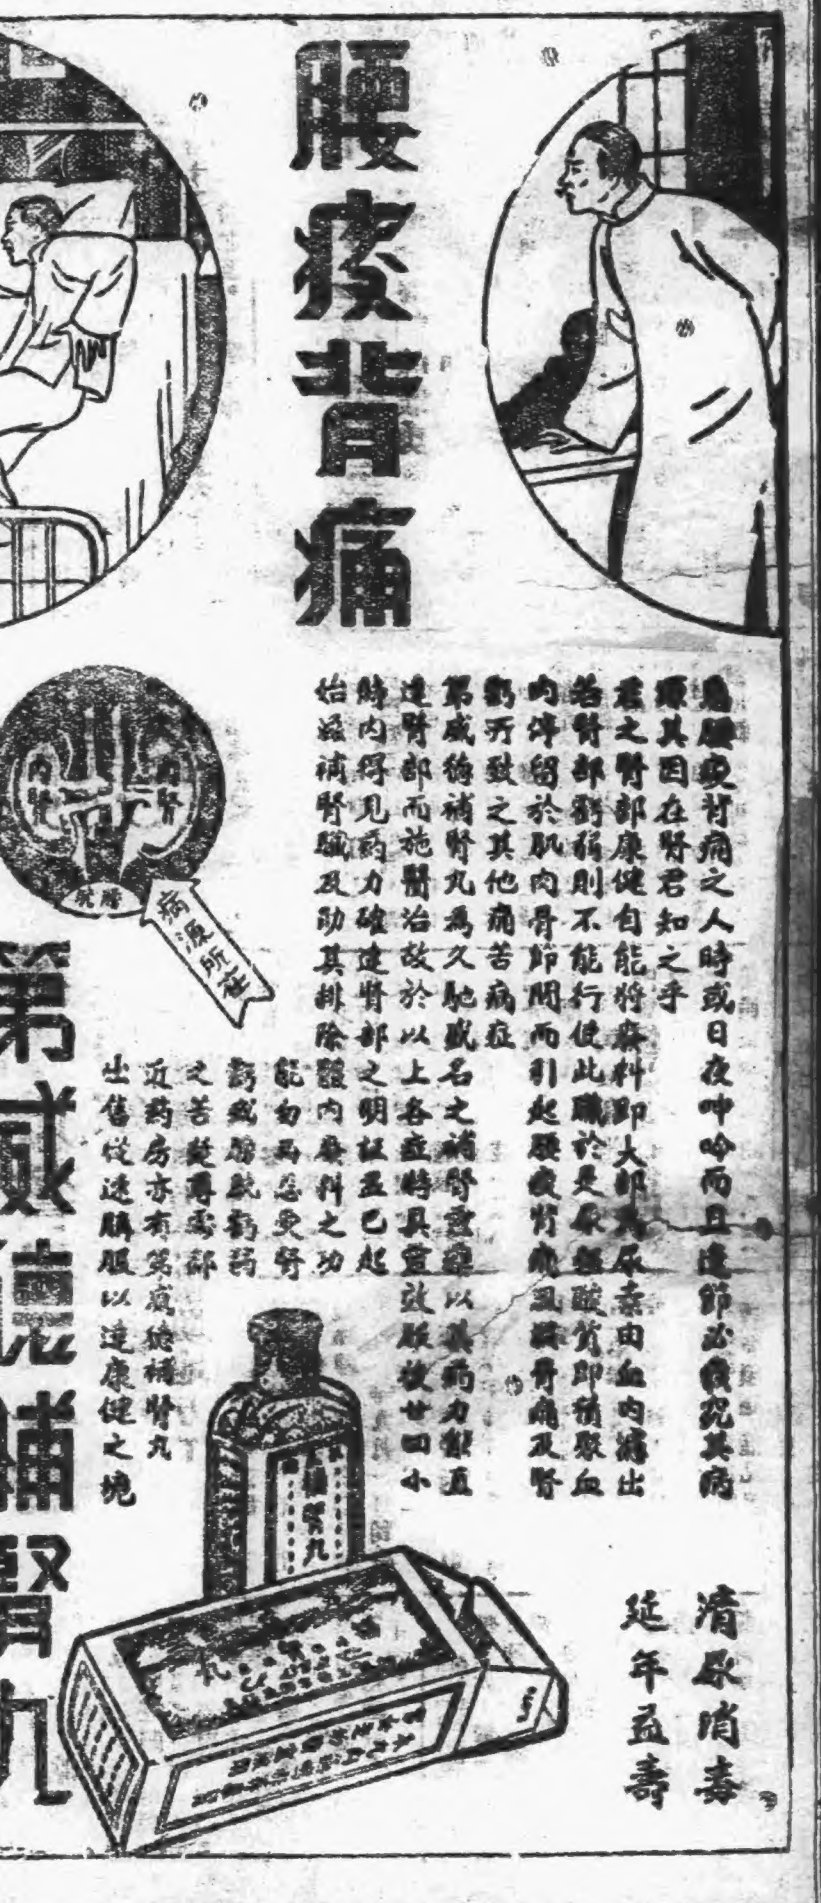 腰痠背痛
患腰痠背痛之人時或日夜呻吟而且邊節必 究其病
源其因在腎君知之乎
君之腎部康健自能將廢料即大部為尿素由血內濾出
若腎部虧弱則不能行使此職於是尿 酸質即積聚血
內停留於肌肉骨節間而引起腰痠背痛風濕骨痛及腎
虧所致之其他痛苦病症
第威德補腎丸為久馳盛名之補腎靈藥以其药力能直
達腎部而施醫治故於以上各症特具靈效服後廿四小
時內得見药力確達腎部之明証並已起
始滋補腎臟及助其排除體內廢料之功
能勿再忍受腎
虧或膀胱虧弱
之苦楚尊處鄰
近药房亦有第威德補腎丸
出售從速購服以達康健之境
清尿消毒
延年益壽
內腎
內腎
膀胱
病源所在
第威德補腎丸
補腎丸